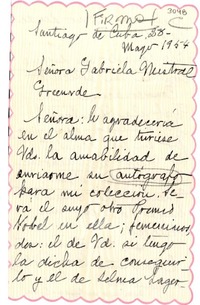 FIRMA
C
3048
Santiago de Cuba, 28-
Mayo 1954
Señora Gabriela Mistral
Señora: le agradecería
en el alma que tuviese
Vds. la amabilidad de
enviarme su autógrafo
para mi colección. Se-
rá el suyo otro Premio
Nobel en ella; femeninos
dos: el de Vd. si tengo
la dicha de conseguir-
lo y el de Selma Lager-